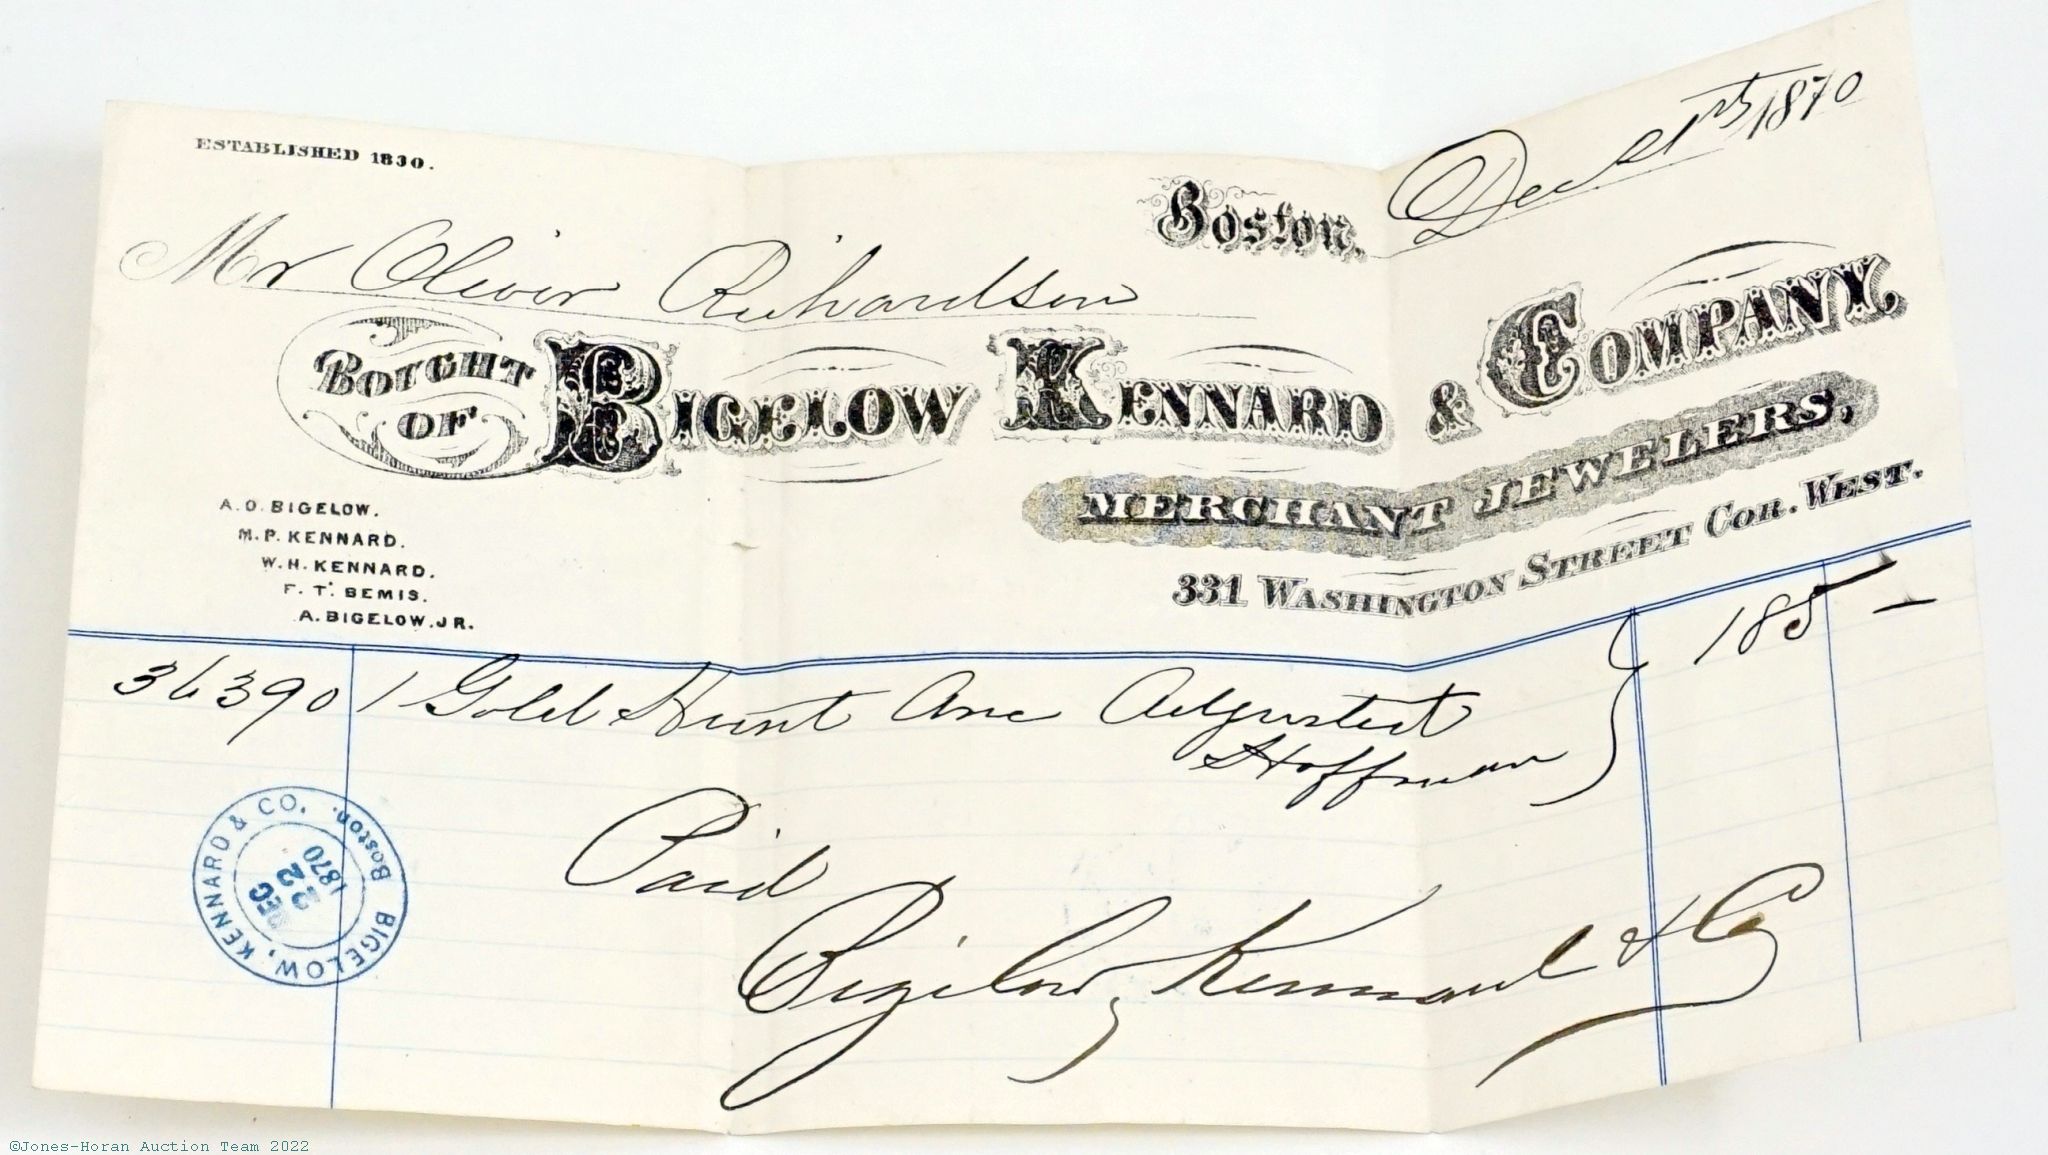 ESTABLISHED 1830.
Boston, Dec 21st 1870
Mr Oliver Richardson
BOUGHT OF BIGELOW KENNARD & COMPANY,
MERCHANT JEWELERS,
331 WASHINGTON STREET COR. WEST.
A. O. BIGELOW.
M. P. KENNARD.
W. H. KENNARD.
F. T. BEMIS.
A. BIGELOW. JR.
36390 1 Gold Hunt Anc Adjusted } 185 —
Hoffman
Paid
Bigelow, Kennard & Co
BIGELOW, KENNARD & CO. Boston.
DEC
22
1870
©Jones-Horan Auction Team 2022